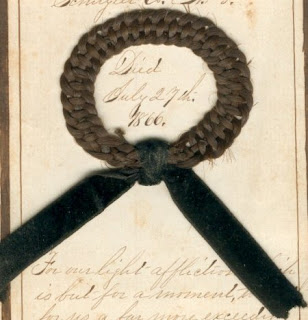 Died
July 27th.
1866.
For our light affliction
is but for a moment,
for us a far more exceeding